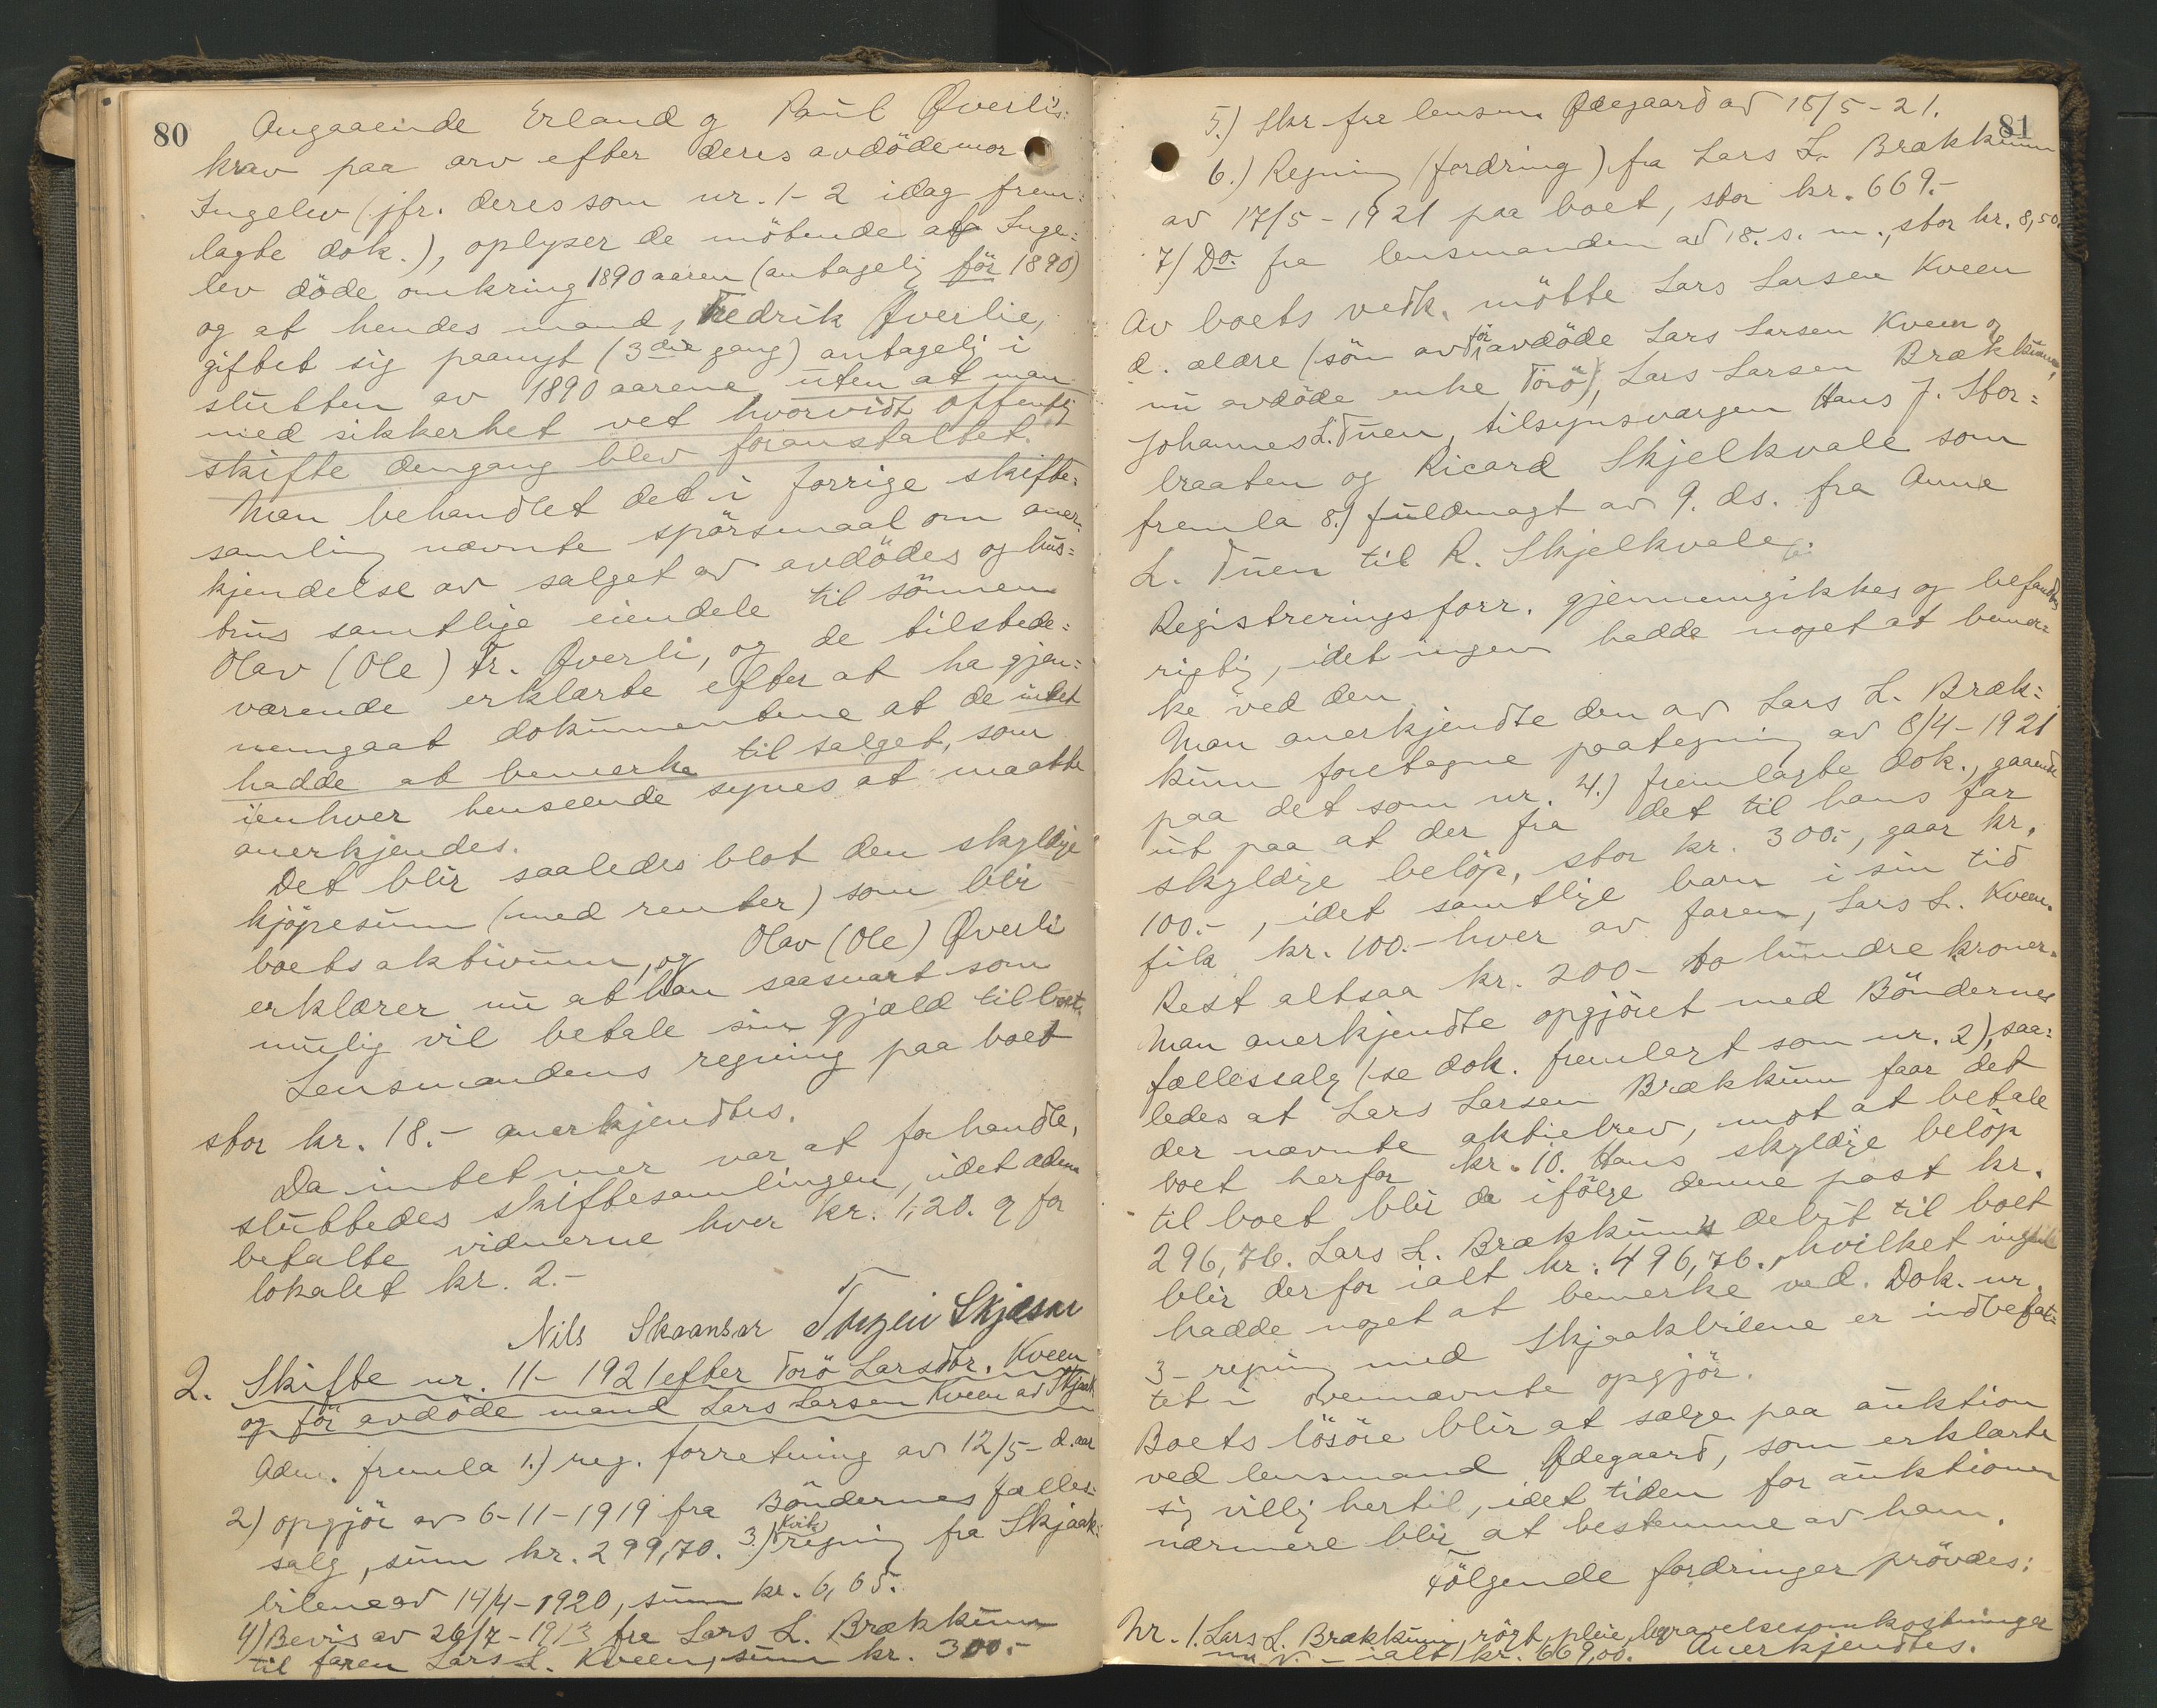 80
Angaaende Erland og Paul Øverlis:
krav paa arv efter deres avdöde mor
Ingelev (jfr. deres som nr. 1-2 idag frem:
lagte dok.), oplyser de mötende at Inge:
lev döde omkring 1890 aaren (antagelig för 1890)
og at hendes mand, Fredrik Øverlie,
giftet sig paanyt (3die gang) antagelig i
slutten av 1890 aarene uten at man
med sikkerhet vet hvorvidt offentlig
skifte dengang blev foranstaltet.
Man behandlet det i forrige skifte:
samling nævnte spörsmaal om aner:
kjendelse av salget av avdödes og hus:
trus samtlige eiendele til sönnen
Olav (Ole) Fr. Øverli, og de tilstede:
værende erklærte efter at ha gjen:
nemgaat dokumentene at de intet
hadde at bemerke til salget, som
i enhver henseende synes at maatte
anerkjendes.
Det blir saaledes blot den skyldige
kjöpesum (med renter) som blir
boets aktivum, og Olav (Ole) Øverli
erklærer nu at han saasnart som
mulig vil betale sin gjæld til boet.
Lensmandens regning paa boet
stor kr. 18.- anerkjendtes.
Da intet mer var at forhandle,
sluttedes skiftesamlingen, idet adm.
betalte vidnerne hver kr. 1,20. og for
lokalet kr. 2.-
Nils Skaansar Skjæsar
2. Skifte nr. 11- 1921 efter Torö Larsdtr. Kveen
og för avdöde mand Lars Larsen Kveen av Skjaak
Adm. fremla 1.) reg. forretning av 12/5- d. aar
2) opgjör av 6-11-1919 fra Böndernes fælles:
salg, sum kr. 299,70. 3.) Kvit. regning fra Skjaak:
bilene av 14/4-1920, sum kr. 6,65.
4) Bevis av 26/7-1913 fra Lars L. Brækkum
til faren Lars L. Kveen, sum kr. 300.-
81
5.) Skr. fra lensm. Ødegaard av 18/5-21.
6.) Regning (fordring) fra Lars L. Brækkum
av 17/5-1921 paa boet, stor kr. 669.-
7) Do. fra lensmanden av 18. s. m., stor kr. 8,50.
Av boets vedk. mötte Lars Larsen Kveen
d. ældre (sön av för avdöde Lars Larsen Kveen og
nu avdöde enke Torö), Lars Larsen Brækkum,
Johannes L. Tuen, tilsynsvergen Hans J. Stor:
braaten og Ricard Skjelkvale som
fremla 8.) fuldmagt av 9. ds. fra Anne
L. Tuen til R. Skjelkvale.
Registreringsforr. gjennemgikkes og befandtes
rigtig, idet ingen hadde noget at bemer:
ke ved den.
Man anerkjendte den av Lars L. Bræk:
kum foretagne paategning av 8/4-1921
paa det som nr. 4.) fremlagte dok., gaaende
ut paa at der fra det til hans far
skyldige belöp, stor kr. 300.-, gaar kr.
100.-, idet samtlige barn i sin tid
fik kr. 100.- hver av faren, Lars L. Kveen.
Rest altsaa kr. 200- to hundre kroner.
Man anerkjendte opgjöret med Böndernes
fællessalg (se dok. fremlagt som nr. 2), saa:
ledes at Lars Larsen Brækkum faar det
der nævnte aktiebrev, mot at betale
boet herfor kr. 10. Hans skyldige belöp
til boet blir da ifölge denne post kr.
296,76. Lars L. Brækkums debit til boet
blir derfor ialt kr. 496,76., hvilket ingen
hadde noget at bemerke ved. Dok. nr.
3 - regning med Skjaakbilene er indbefat:
tet i ovennævnte opgjör.
Boets lösöre blir at sælge paa auktion
ved lensmand Ødegaard, som erklærte
sig villig hertil, idet tiden for auktionen
nærmere blir at bestemme av ham.
Fölgende fordringer prövdes:
Nr. 1. Lars L. Brækkum, rört pleie, begravelsesomkostninger
m. v. - ialt kr. 669,00. Anerkjendtes.